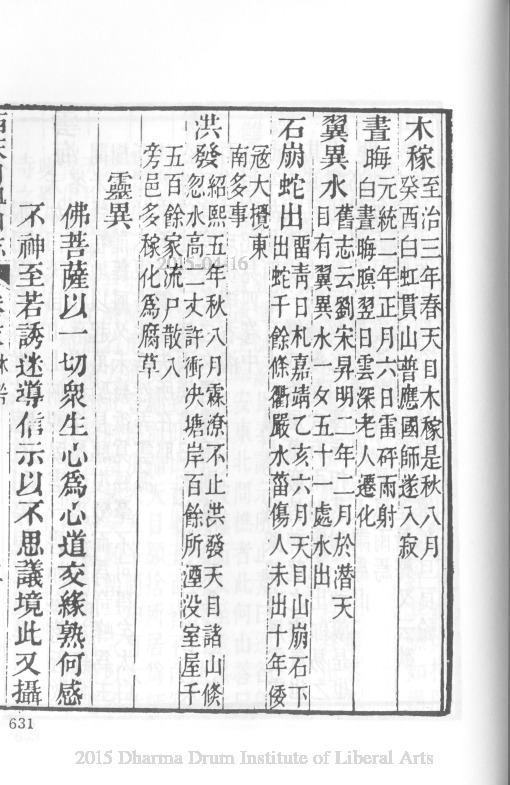 木稼至治三年春天目木稼是秋八月
癸酉白虹貫山普應國師遂入寂
晝晦元統二年正月六日雷砰雨射
白晝晦暝翌日雲深老人遷化
翼異水舊志云劉宋昇明二年 月於潛天
目有翼異水一夕五十一處水出
石崩蛇出留青日札嘉靖乙亥六月天目山崩石下
出蛇千餘條衢嚴水菑傷人未出十年倭
寇大擾東
南多事
洪發紹熙五年秋八月霖潦不止洪發天目諸山倏
忽水高二丈許衝決塘岸百餘所湮没室屋千
五百餘家流尸散入
旁邑多稼化為腐草
靈異
佛菩薩以一切眾生心為心道交緣熟何感
不神至若誘迷導信示以不思議境此又攝
631
2015-04-16
2015 Dharma Drum Institute of Liberal Arts